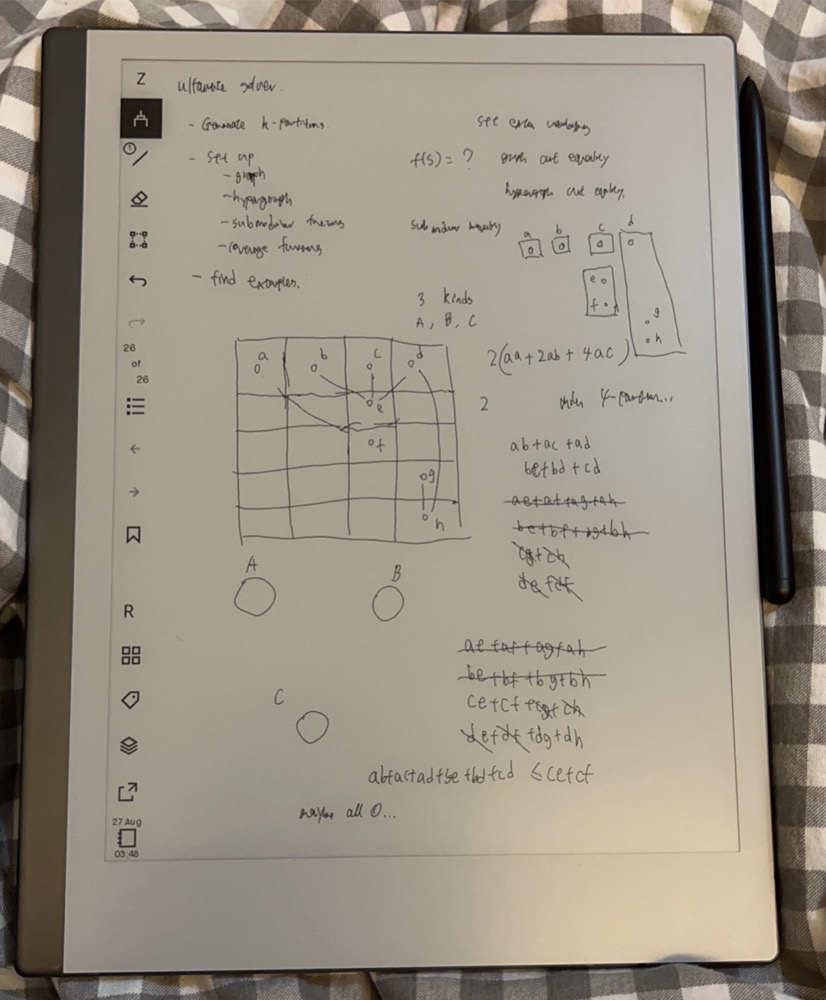 Z
ultimate solver.
- Generate k-partitions
- Set up
- graph
- hypergraph
- submodular
- coverage
- find examples.
see
f(S) = ?
graph cut equality
hypergraph cut
submodular
a b c d
e
f
g
h
3 kinds
A, B, C
2(aa+2ab + 4ac)
2
4-
a b c d
e
f
g
h
ab+ac+ad
bc+bd+cd
ae+af+ag+ah
be+bf+bg+bh
cg+ch
de+df
A B
C
ae+af+ag+ah
be+bf+bg+bh
ce+cf+cg+ch
de+df+dg+dh
ab+ac+ad+bc+bd+cd ≤ ce+cf
maybe all 0...
26
of
26
R
27 Aug
03:48